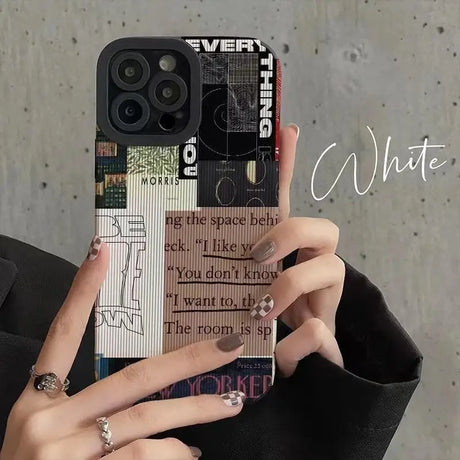 EVERY
THING
White
MORRIS
ng the space behi
eck. "I like yo
"You don't know
BE
"I want to, tha
The room is sp
NOW
Price 25 cen
NEW YORKER